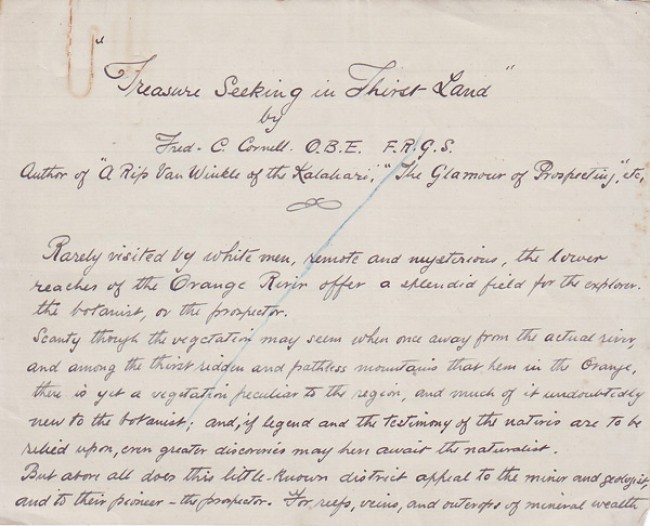 "Treasure Seeking in Thirst Land"
by
Fred. C. Cornell. O.B.E. F.R.G.S.
Author of "A Rip Van Winkle of the Kalahari," "The Glamour of Prospecting," etc,
Rarely visited by white men, remote and mysterious, the lower
reaches of the Orange River offer a splendid field for the explorer.
the botanist, or the prospector.
Scanty though the vegetation may seem when once away from the actual river,
and among the thirst ridden and pathless mountains that hem in the Orange,
there is yet a vegetation peculiar to the region, and much of it undoubtedly
new to the botanist; and, if legend and the testimony of the natives are to be
relied upon, even greater discoveries may here await the naturalist.
But above all does this little-known district appeal to the miner and geologist,
and to their pioneer – the prospector. For, reefs, veins, and outcrops of mineral wealth